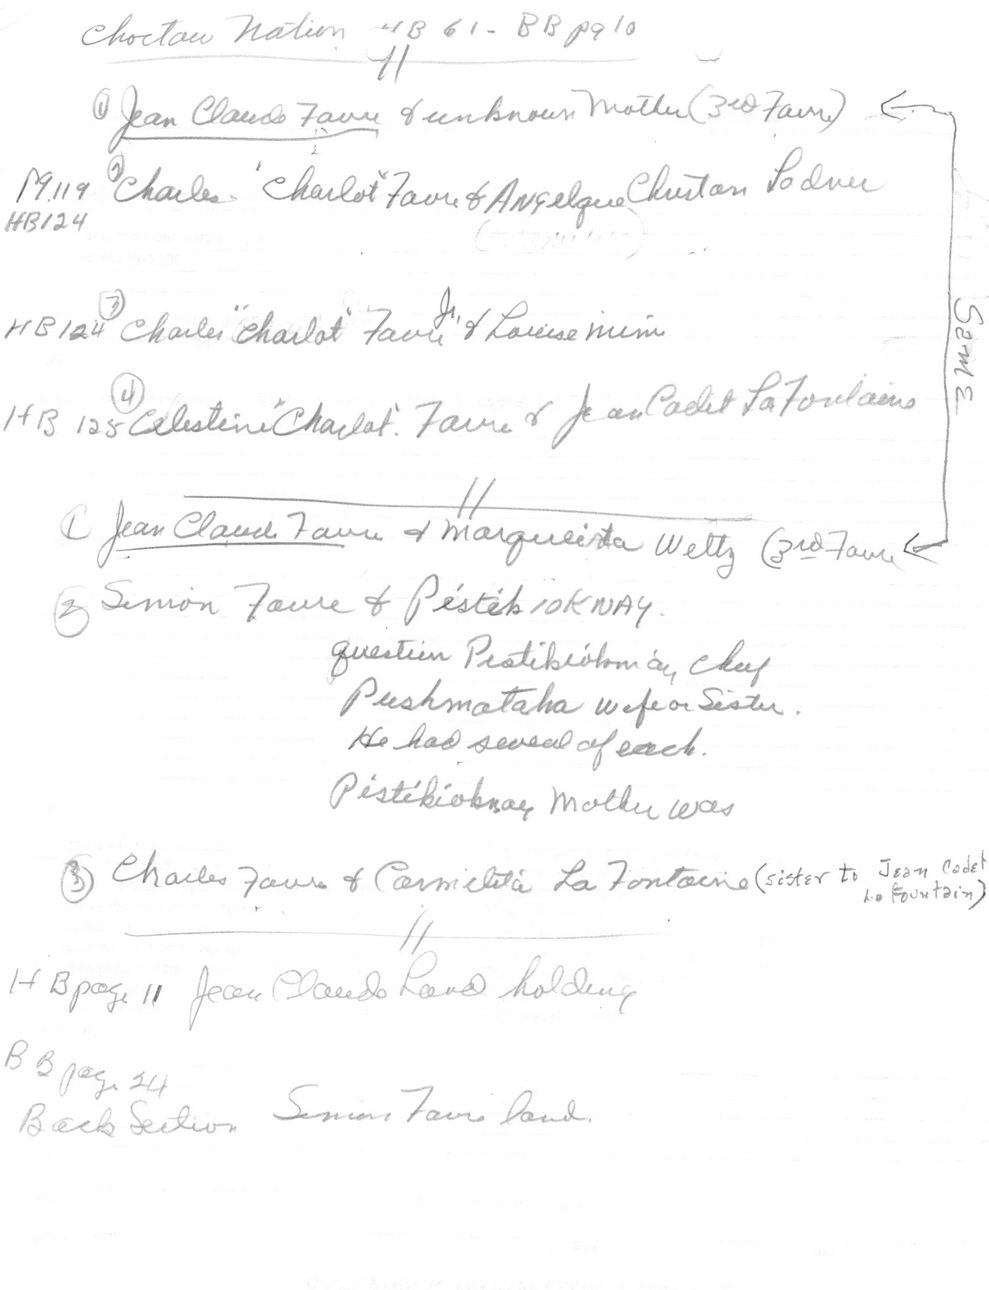 Choctaw Nation HB 61 - BB pg 10
① Jean Claude Favre & unknown Mother (3rd Favre)
Pg. 119 ② Charles "Charlot" Favre & Angelque Chustan Ladner
HB 124
HB 124 ③ Charles "Charlot" Favre Jr. & Louise Mimi
HB 125 ④ Celestine "Charlot". Favre & Jean Cadet La Fontaine
SamE
① Jean Claude Favre & Margueista Weltz (3rd Favre
② Simon Favre & PistikiOKNAY.
question Pistikiokonay chief
Pushmataha wife or Sister.
He had several of each.
Pistikioknay Mother was
③ Charles Favre & Carmelita La Fontaine (sister to Jean Cadet
La Fountain)
HB page 11 Jean Claude Land holding
BB page 24
Back Section Simon Favre land.